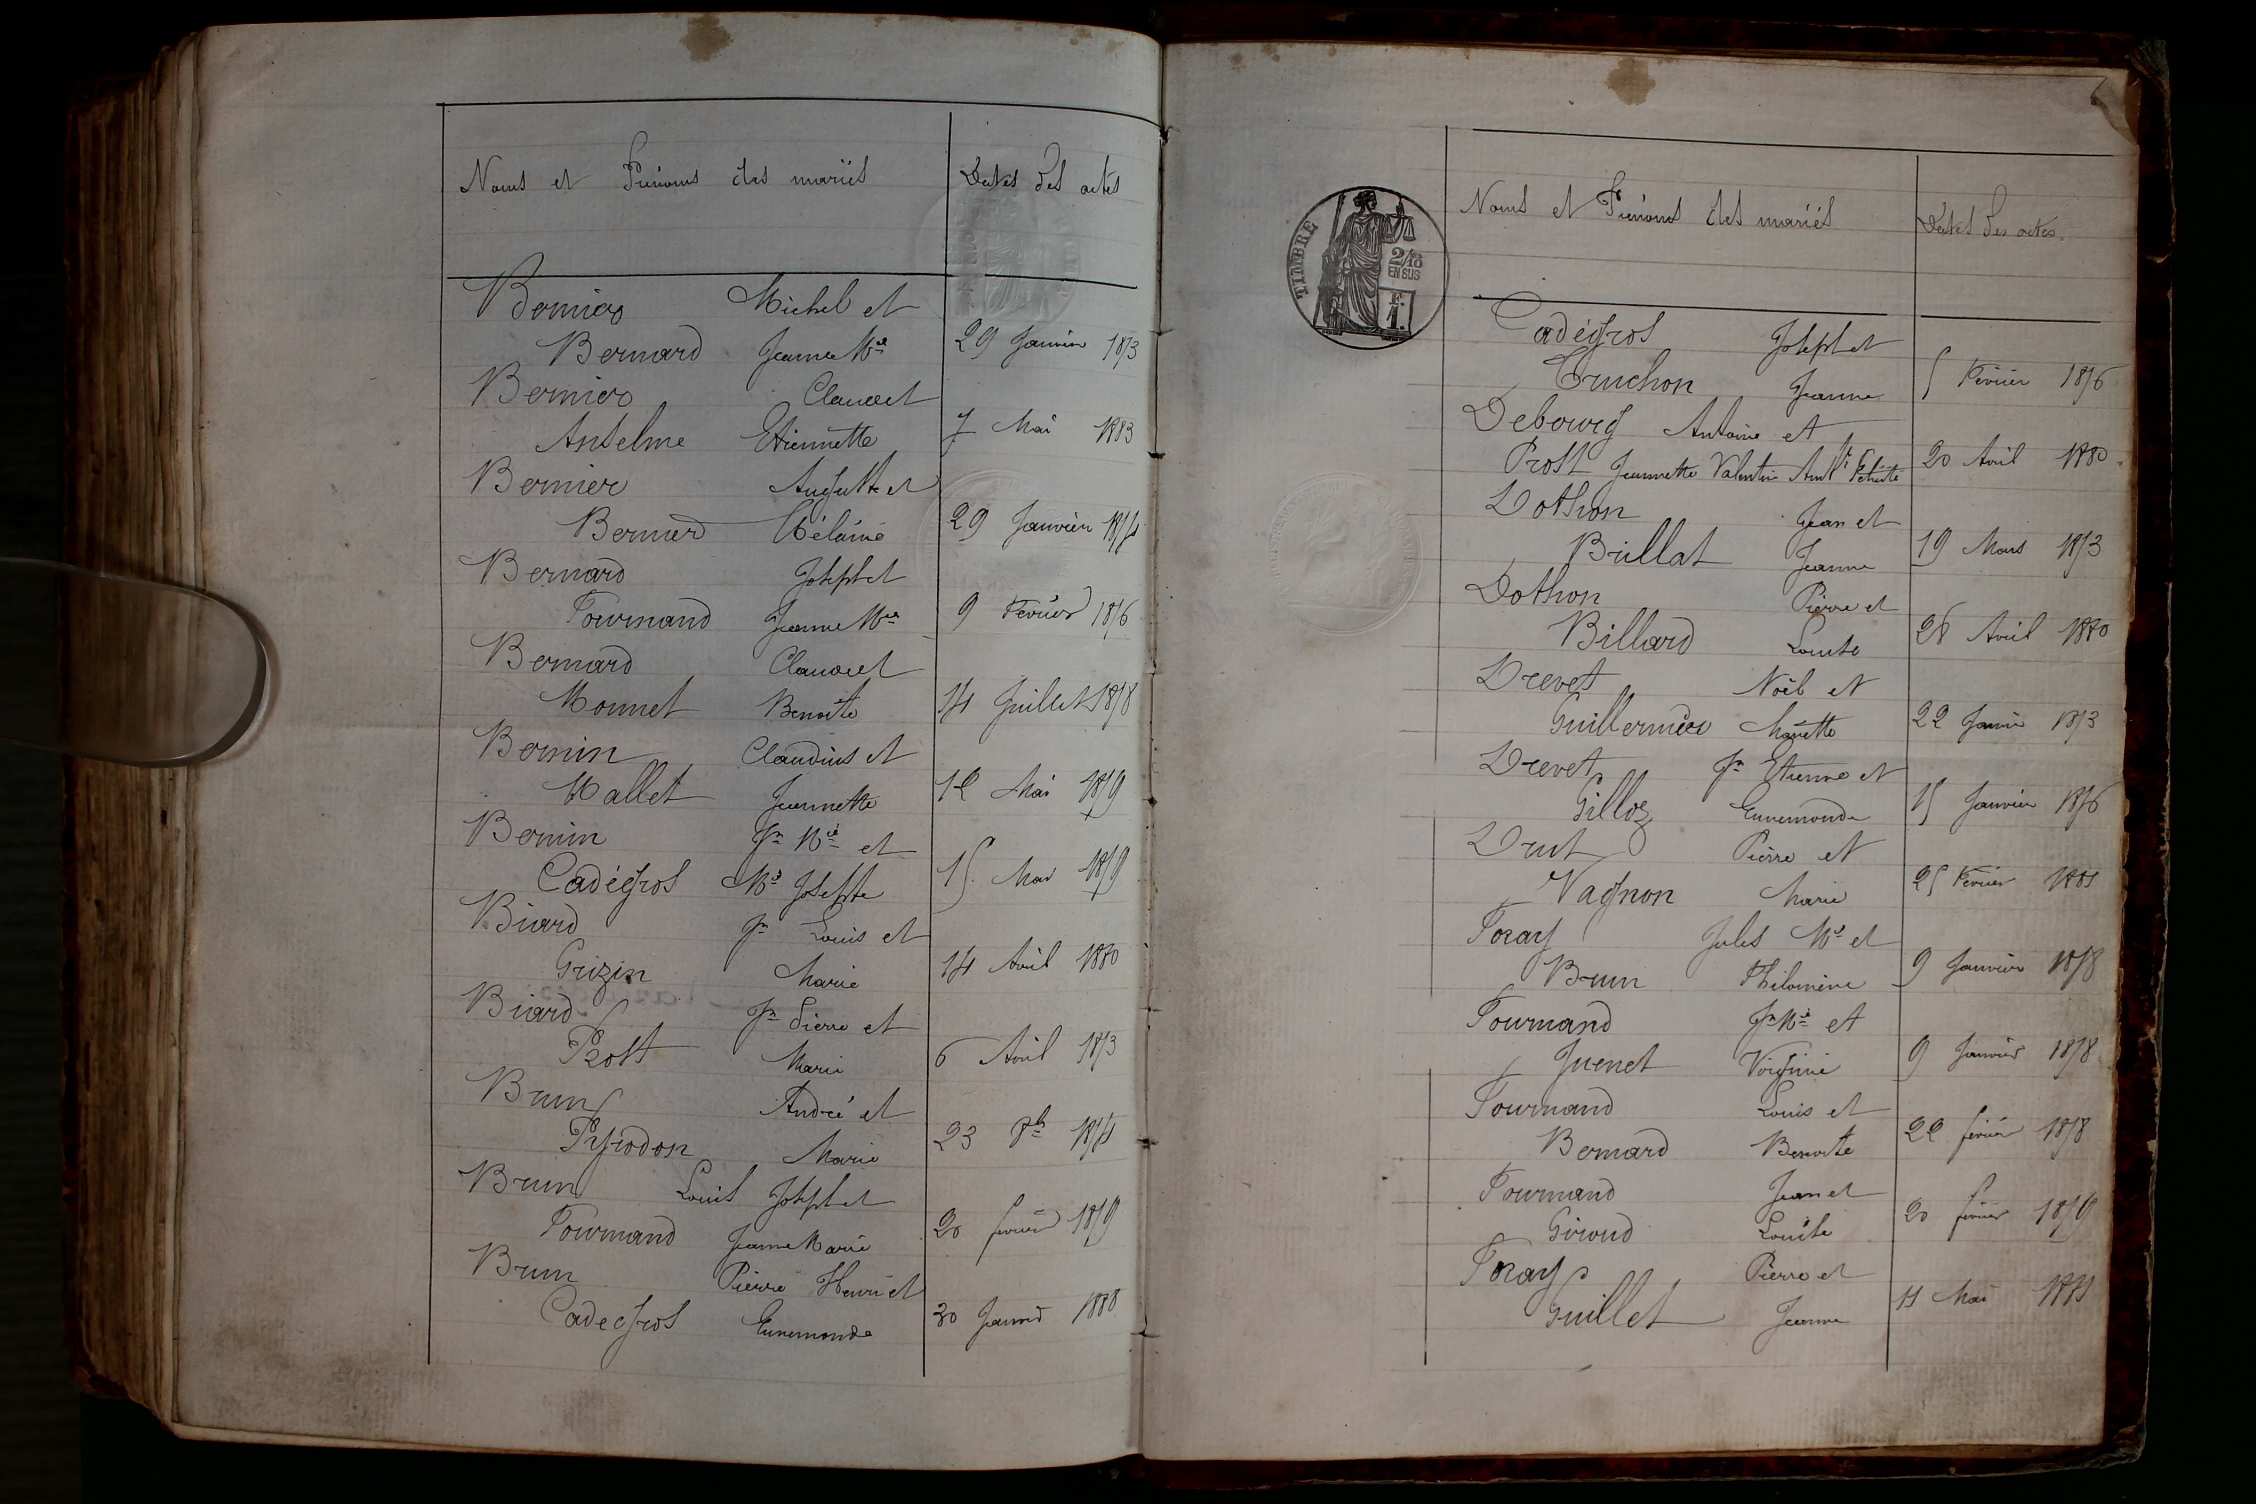 Noms et Prénoms des mariés
Dates des actes
Bernier Michel et
Bernard Jeanne Mie
29 Janvier 1873
Bernier Claude et
Anselme Etiennette
7 Mai 1883
Bernier Auguste et
Bernard Mélanie
29 Janvier 1874
Bernard Joseph et
Fournand Jeanne Mie
9 Février 1876
Bernard Claude et
Monnet Benoite
14 Juillet 1878
Bernin Claudius et
Mallet Jeannette
12 Mai 1879
Bernin Jn Mie et
Cadégros Mie Josephte
15 Mai 1879
Biard Jn Louis et
Grizin Marie
14 Avril 1880
Biard Jn Pierre et
Prost Marie
6 Avril 1873
Brun André et
Peyrodon Marie
23 1874
Brun Louis Joseph et
Fournand Jeanne Marie
20 février 1879
Brun Pierre Henri et
Cadegros Ennemonde
30 Janvier 1888
TIMBRE
2/10
EN SUS
F.
1.
Noms et Prénoms des mariés
Dates des actes
Cadégros Joseph et
Truchon Jeanne
5 Février 1876
Debourg Antoine et
Prost Jeannette Valentine
20 Avril 1880
Dothon Jean et
Brillat Jeanne
19 Mars 1873
Dothon Pierre et
Billard Louise
28 Avril 1880
Drevet Noël et
Guillermier Mariette
22 Janvier 1873
Drevet Jn Etienne et
Gilloz Ennemonde
15 Janvier 1876
Drut Pierre et
Vagnon Marie
25 Février
Foray Jules Mie et
Brun Philomène
9 Janvier 1878
Fournand Jn Mie et
Juenet Virginie
9 Janvier 1878
Fournand Louis et
Bernard Benoite
22 février 1878
Fournand Jean et
Giroud Louise
20 février 1879
Foray Pierre et
Guillet Jeanne
11 Mai